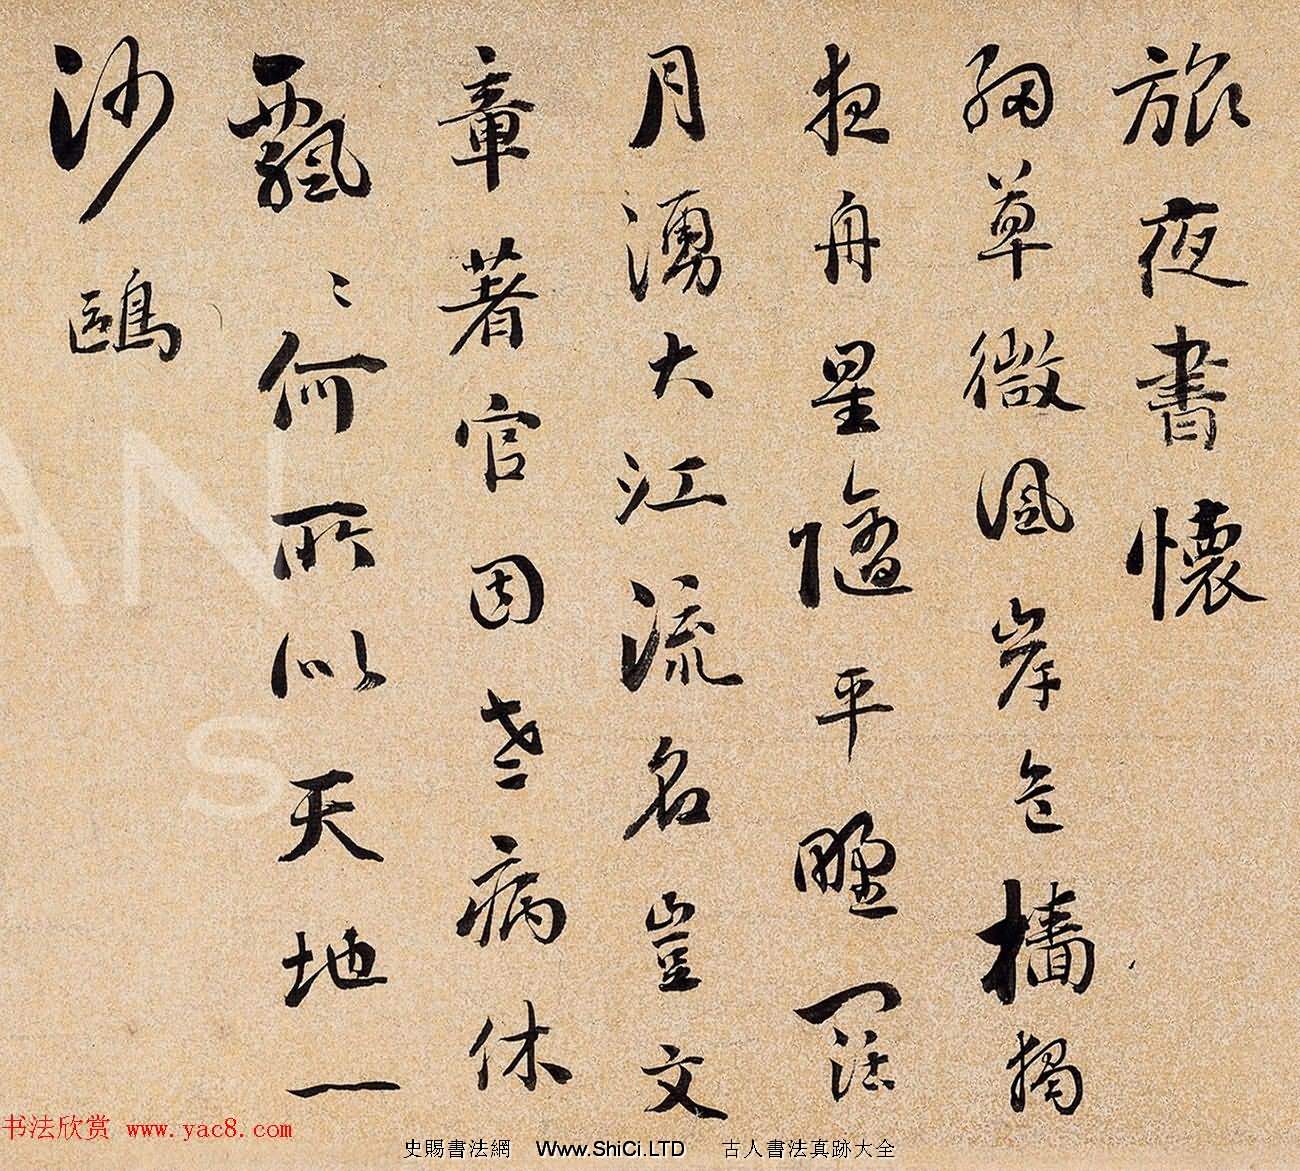 旅夜書懷
細草微風岸危檣獨
夜舟星隨平野闊
月湧大江流名豈文
章著官因老病休
飄〻何所似天地一
沙鷗
AN
S
书法欣赏 www.yac8.com
史賜書法網 Www.ShiCi.LTD 古人書法真跡大全